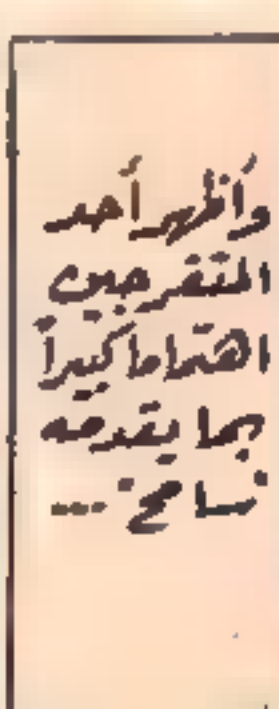 وأظهر أحد
المتفرجين
اهتماما كبيراً
بما يقدمه
"سامح" ...